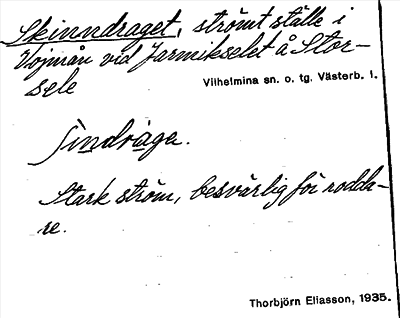 Skinndraget, strömt ställe i
Vojmån vid Jarmikselet å Stor-
sele
Vilhelmina sn. o. tg. Västerb. l.
ʃindràga.
Stark ström, besvärlig för rodda-
re.
Thorbjörn Eliasson, 1935.